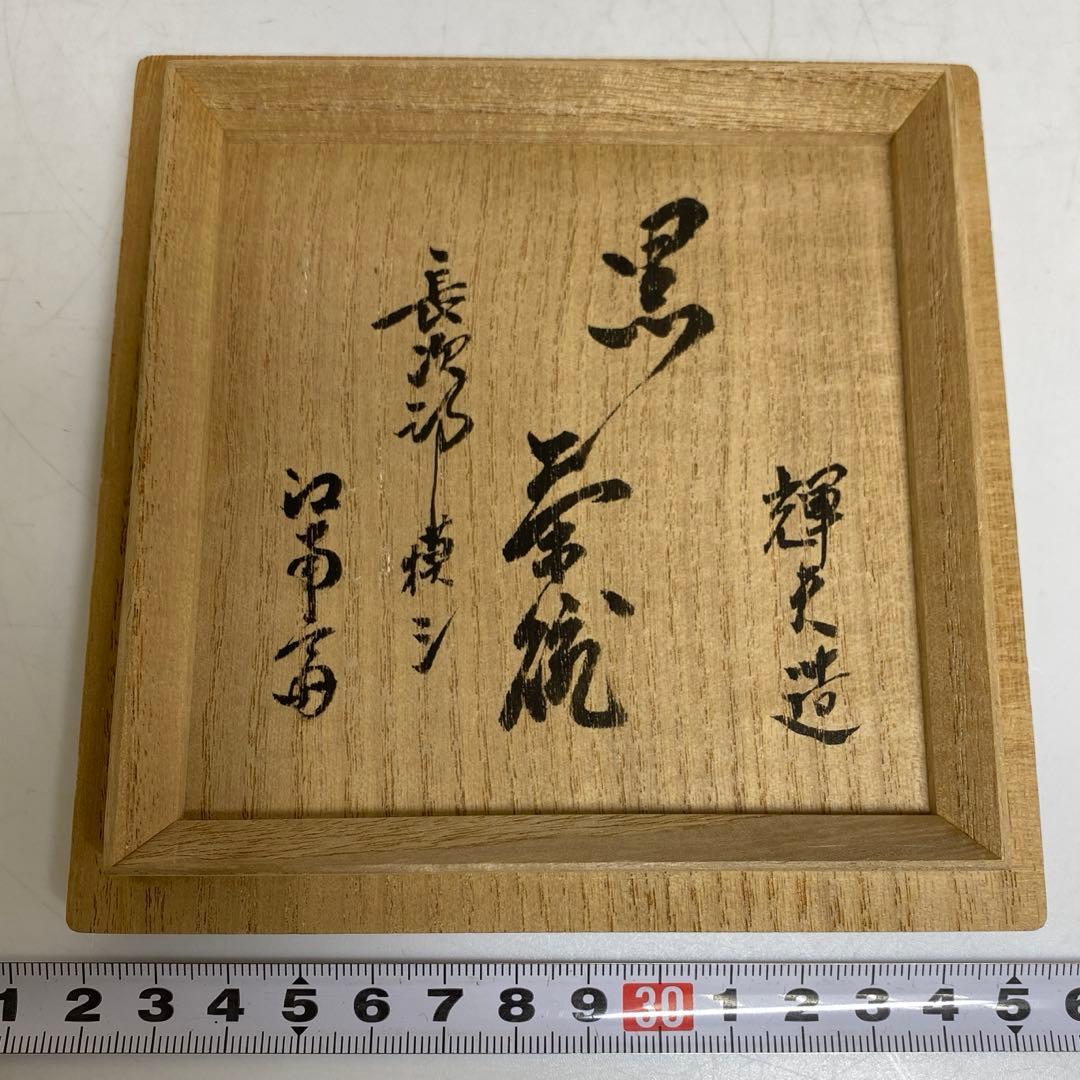 輝夫造
黒
茶碗
長次郎 模シ
1 2 3 4 5 6 7 8 9 30 1 2 3 4 5 6